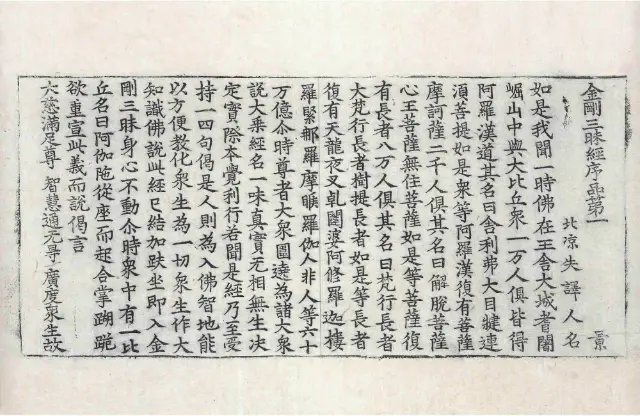 金剛三昧經序品第一
北凉失譯人名
如是我聞一時佛在王舍大城耆闍
崛山中與大比丘衆一万人俱皆得
阿羅漢道其名曰舍利弗大目犍連
須菩提如是衆等阿羅漢復有菩薩
摩訶薩二千人俱其名曰解脫菩薩
心王菩薩無住菩薩如是等菩薩復
有長者八万人俱其名曰梵行長者
大梵行長者樹提長者如是等長者
復有天龍夜叉乹闥婆阿修羅迦樓
羅緊那羅摩睺羅伽人非人等六十
万億尒時尊者大衆圍遶為諸大衆
說大乘經名一味真實无相無生决
定實際本覺利行若聞是經乃至受
持一四句偈是人則為入佛智地能
以方便教化衆生為一切衆生作大
知識佛說此經已結加趺坐即入金
剛三昧身心不動尒時衆中有一比
丘名曰阿伽陁從座而起合掌跪
欲重宣此義而說偈言
大慈滿足尊 智慧通无㝵 廣度衆生故